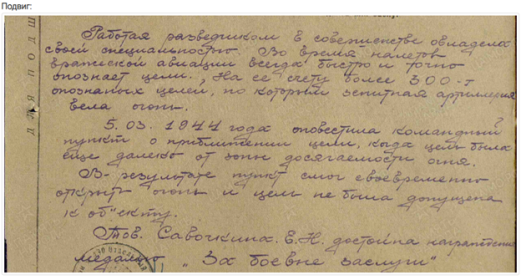 Подвиг:
Работая разведчиком в совершенстве овладела
своей специальностью. Во время налетов
вражеской авиации всегда быстро и точно
опознает цели. На её счету более 300-т
опознаных целей, по которым зенитная артиллерия
вела огонь.
5.03.1944 года оповестила командный
пункт о приближении цели, когда цель была
еще далеко от зоны досягаемости огня.
В результате пункт смог своевременно
открыть огонь и цель не была допущена
к об"екту.
Тов. Савочкина Е.Н. достойна награждения
медалью "За боевые заслуги"